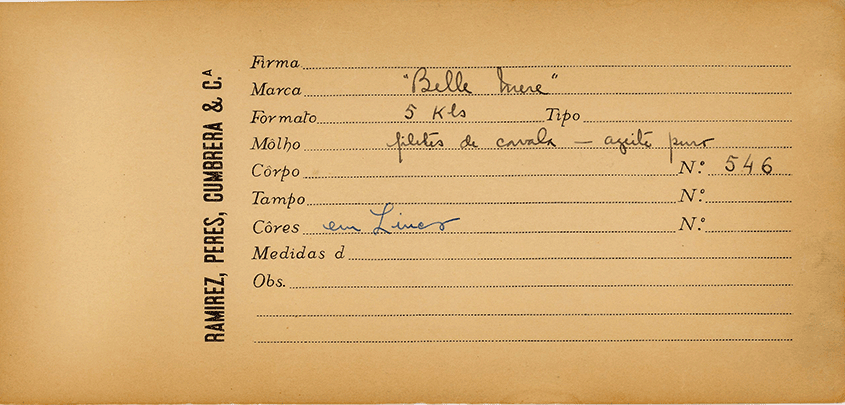 RAMIREZ, PERES, CUMBRERA & C.ᴬ
Firma
Marca "Belle Mere"
Formato 5 Kls Tipo
Môlho filetes de cavala — azeite puro
Côrpo N.º 546
Tampo N.º
Côres em Linco N.º
Medidas d
Obs.